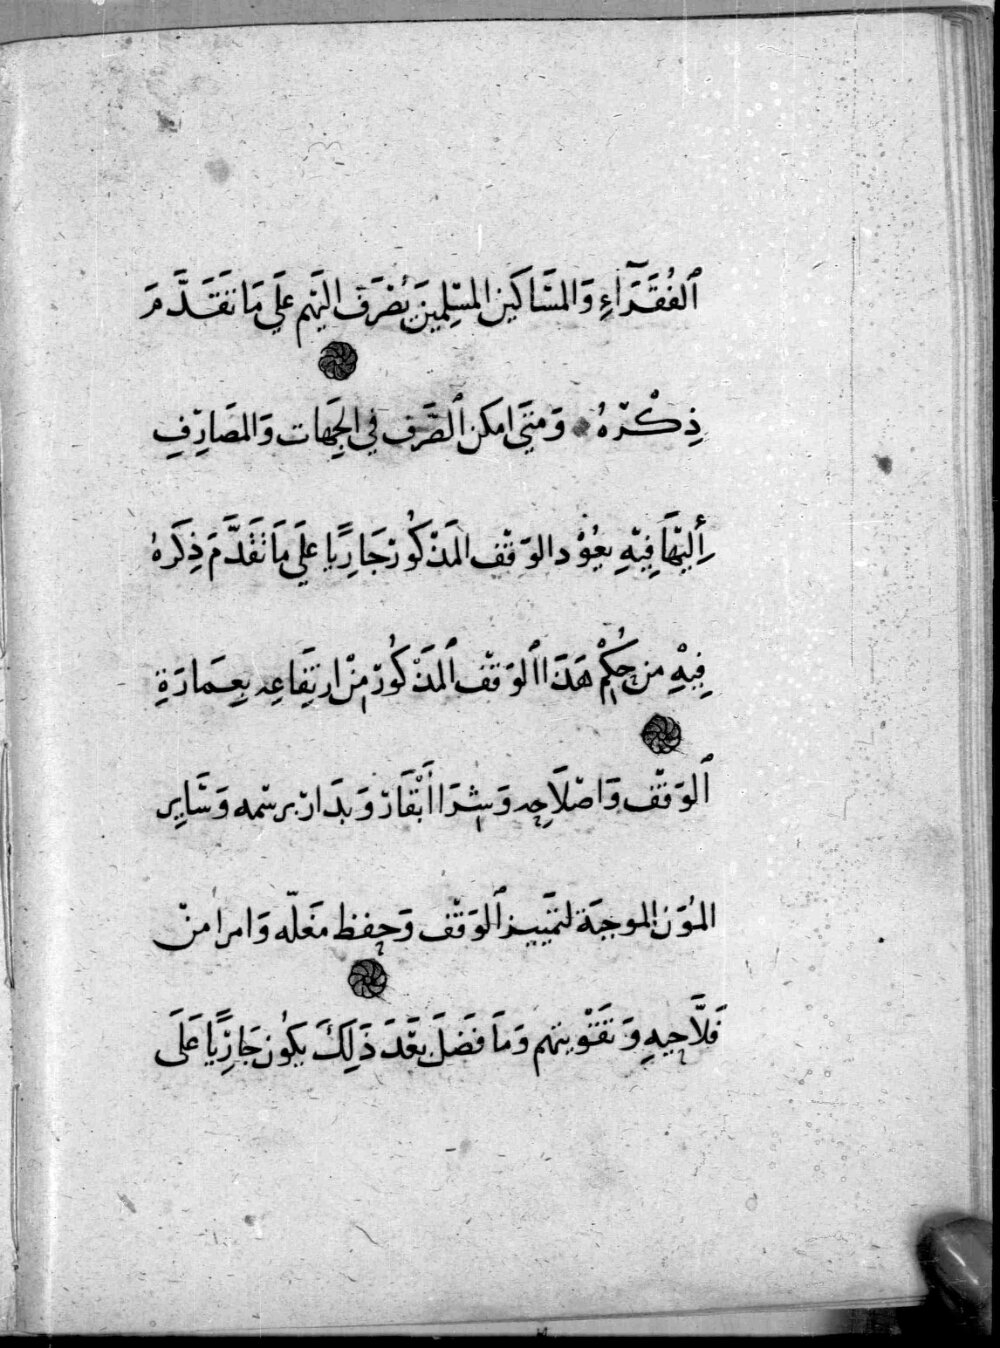 ٱلفُقَرَآءِ وَالمسَاكين المسْلِمينَ يُصْرَف اليَهم علَي مَا تقَدَّمَ
ذِكْرْهُ وَمَتَي امكن ٱلصَّرف في الجِهات وَالمصَارِفِ
أليْهَا فِيْهِ يعُوْد الوَقْف المَذكُورْ جَارِيًا علَي مَا تَقَدَّمَ ذِكَرهُ
فِيْهِ من حُكِمْ هَذَا ٱلوَقْف ٱلمَذْكُورْ مِنْ ارتِفَاعِه بِعِمَارَةِ
ٱلوَقْف وَاصْلَاحِه وَشِرَا أَبْقَارْ وَبدَارْ برسْمه وَسَايِر
المُوَن الموجبَة لتمَييز ٱلوَقْف وَحِفظ مغَلّه وَامر امِنْ
فَلَّاحِيهِ وَتقَتْويتهم وَمَا فضَلَ بعَدَ ذَلِكَ يكُون جَارِيًا عَلَى